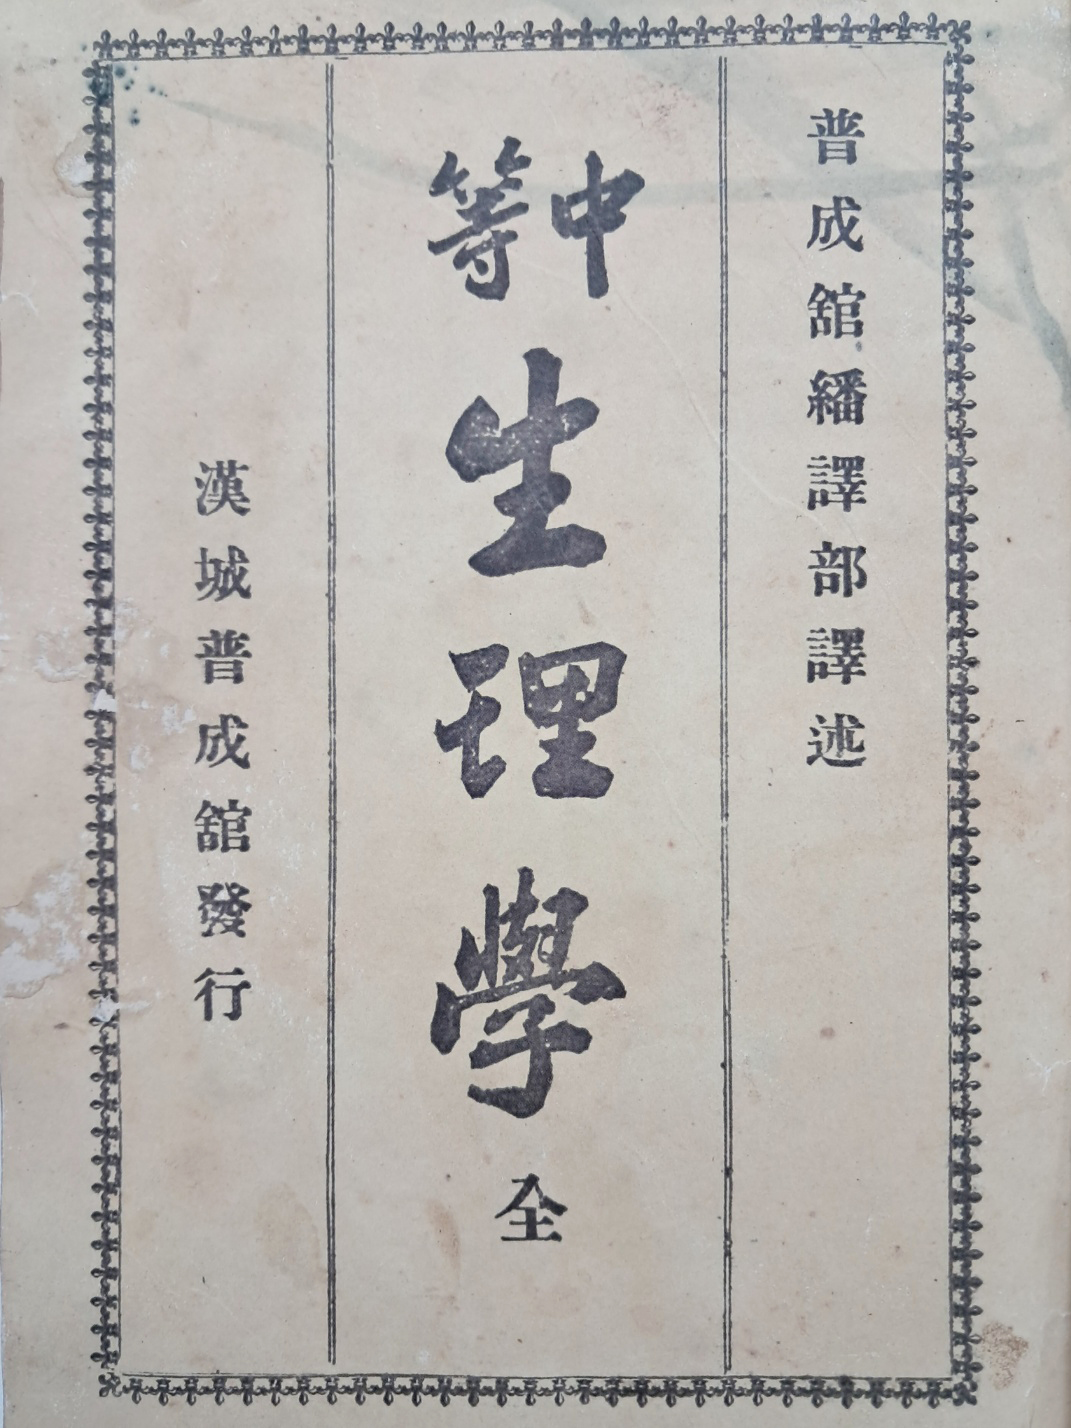 普成舘繙譯部譯述
中等
生理學
全
漢城普成舘發行